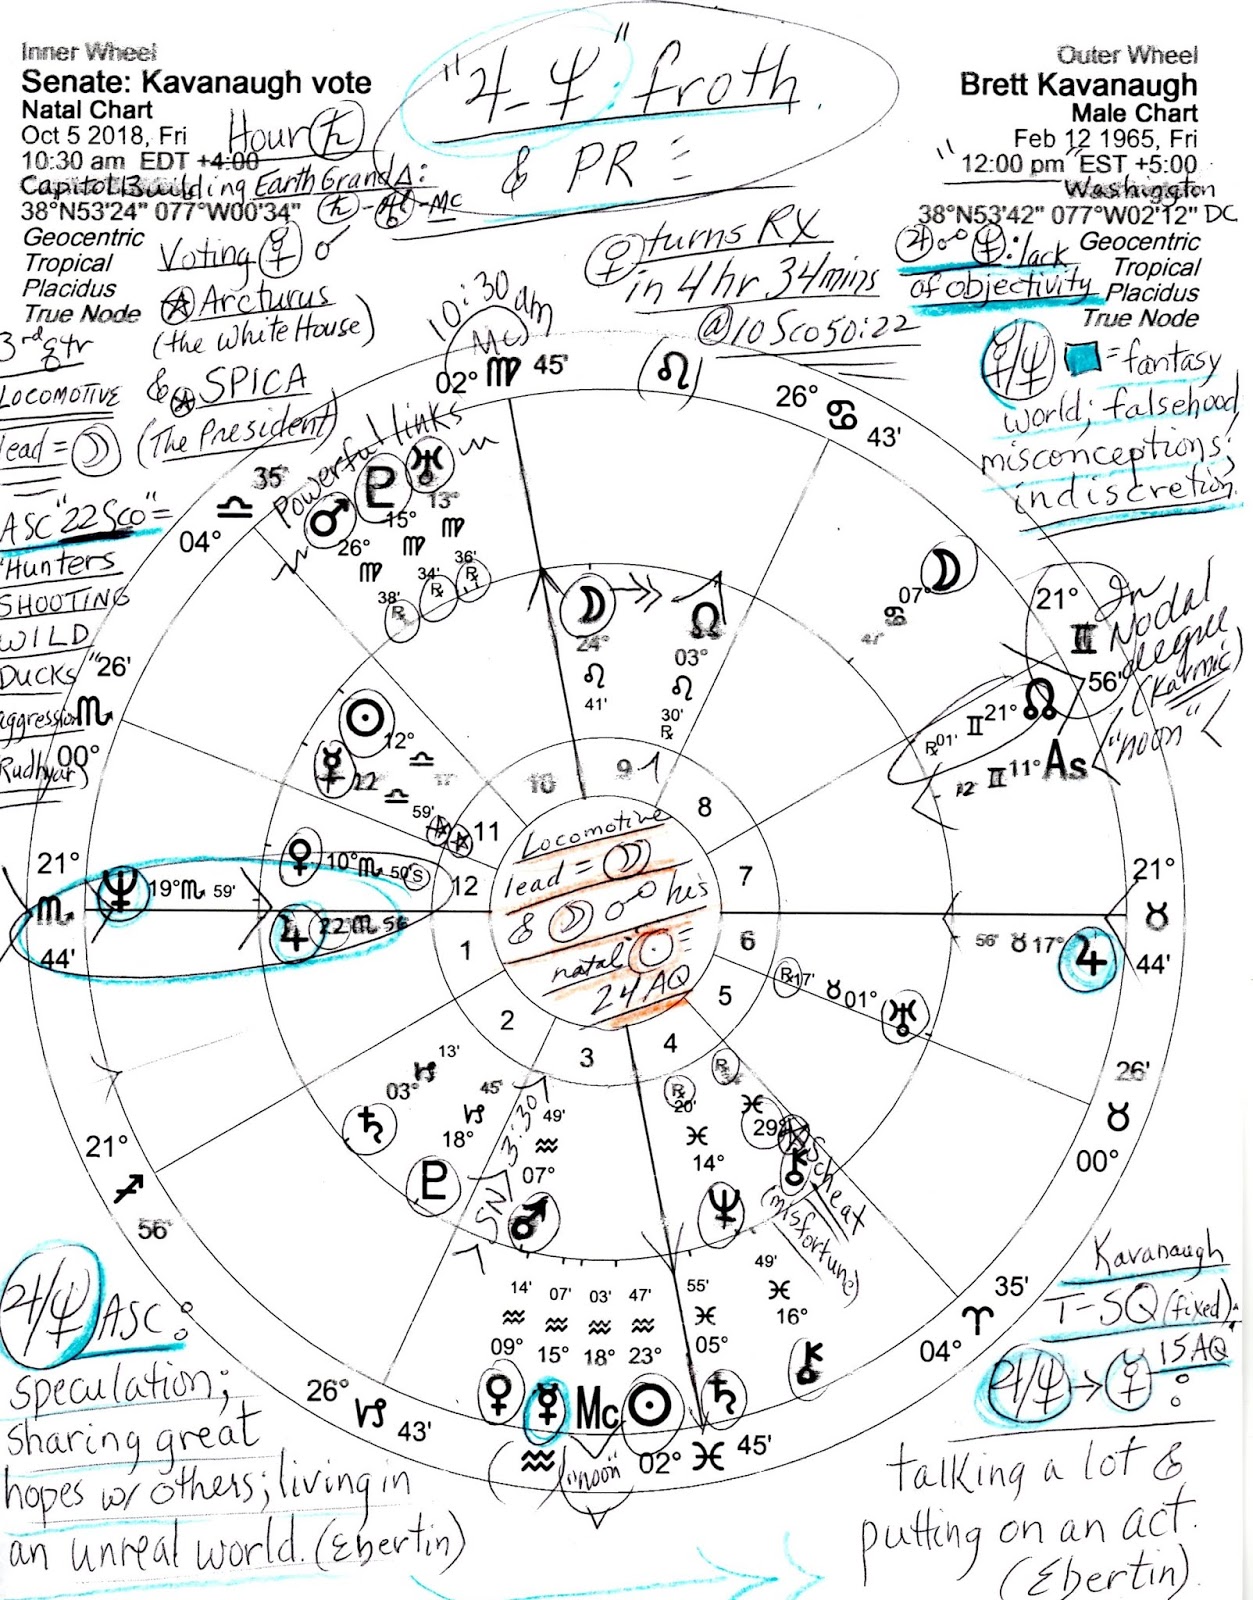 Inner Wheel
Senate: Kavanaugh vote
Natal Chart
Oct 5 2018, Fri
10:30 am EDT +4:00
Capitol Building
38°N53'24" 077°W00'34"
Geocentric
Tropical
Placidus
True Node
Hour ♄
Earth Grand △:
♄-♅-MC
"♃-♆" froth
& PR
Outer Wheel
Brett Kavanaugh
Male Chart
Feb 12 1965, Fri
"12:00 pm" EST +5:00
Washington
38°N53'42" 077°W02'12" DC
Geocentric
Tropical
Placidus
True Node
♃ ☍ ♆: lack
of objectivity
☿/♆ □ = fantasy
world; falsehood,
misconceptions;
indiscretion.
Voting ☿ ☌
Arcturus
(the White House)
& SPICA
(The President)
3rd qtr
LOCOMOTIVE
lead = ☽
ASC "22 Sco" =
"Hunters
SHOOTING
WILD
DUCKS"
aggression
Rudhyar)
♀ turns RX
in 4 hr 34 mins
@ 10 Sco 50:22
10:30 am
MC
02° ♍ 45'
♌
26° ♋ 43'
Powerful links
35'
♎
04°
♂ 26° ♍ 38' ℞
♇ 15° ♍ 34' ℞
♅ 13° ♍ 36' ℞
☽ 24° ♌ 41'
☊ 03° ♌ 30' ℞
☽ 07° ♋
21° ♊ 56'
In
Nodal
degree
(Karmic)
☊ 21° ♊ 01' ℞
As 11° ♊ 12
"noon"
26' ♏ 00°
☉ 12° ♎
☿ 22 ♎ 59'
♀ 10° ♏ 50' S
♆ 19° ♏ 59'
♃ 22 ♏ 56
21° ♏ 44'
21° ♉ 44'
♃ 17° ♉ 56'
♅ 01° ♉ 17' ℞
26' ♉ 00°
10
9
8
11
12
7
1
6
2
5
3
4
Locomotive
lead = ☽
& ☽ ☍ his
natal ☉
24 AQ
♄ 03° ♑ 13'
♇ 18° ♑ 45'
SN
3:30
♂ 07° ♒ 49'
♆ 14° ♓ 20' ℞
⚷ 29° ♓ ℞
Scheat
(misfortune)
21° ♐ 56'
26° ♑ 43'
♀ 09° ♒ 14'
☿ 15° ♒ 07'
Mc 18° ♒ 03'
☉ 23° ♒ 47'
♄ 05° ♓ 55'
⚷ 16° ♓ 49'
♒
"noon"
02° ♓ 45'
35' ♈ 04°
♃/♆ ASC:
speculation;
sharing great
hopes w/ others; living in
an unreal world. (Ebertin)
Kavanaugh
T-SQ (fixed):
♃/♆ → ☿ 15 AQ:
talking a lot &
putting on an act.
(Ebertin).